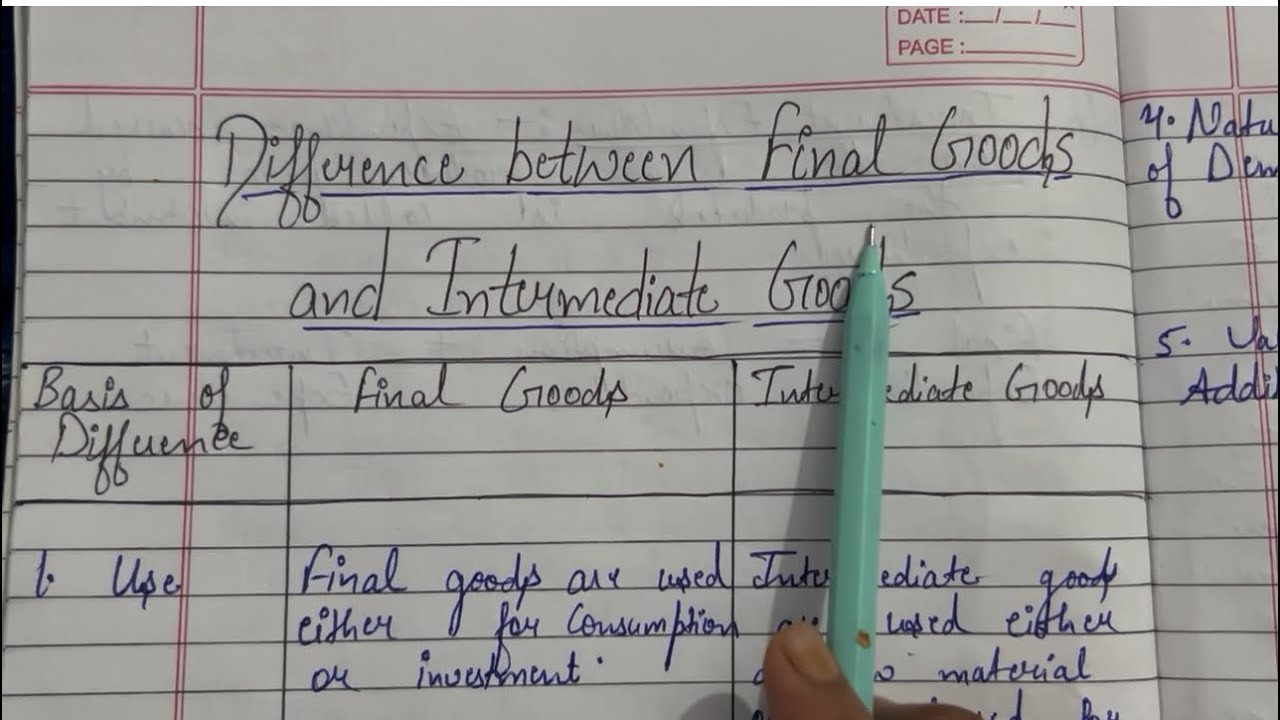 DATE :__/__/__
PAGE :
Difference between Final Goods
and Intermediate Goods
Basis of Difference
Final Goods
Intermediate Goods
1. Use
Final goods are used
either for Consumption
or investment.
Intermediate goods
are used either
material
by
4. Natu
of Dem
5. Va
Addi